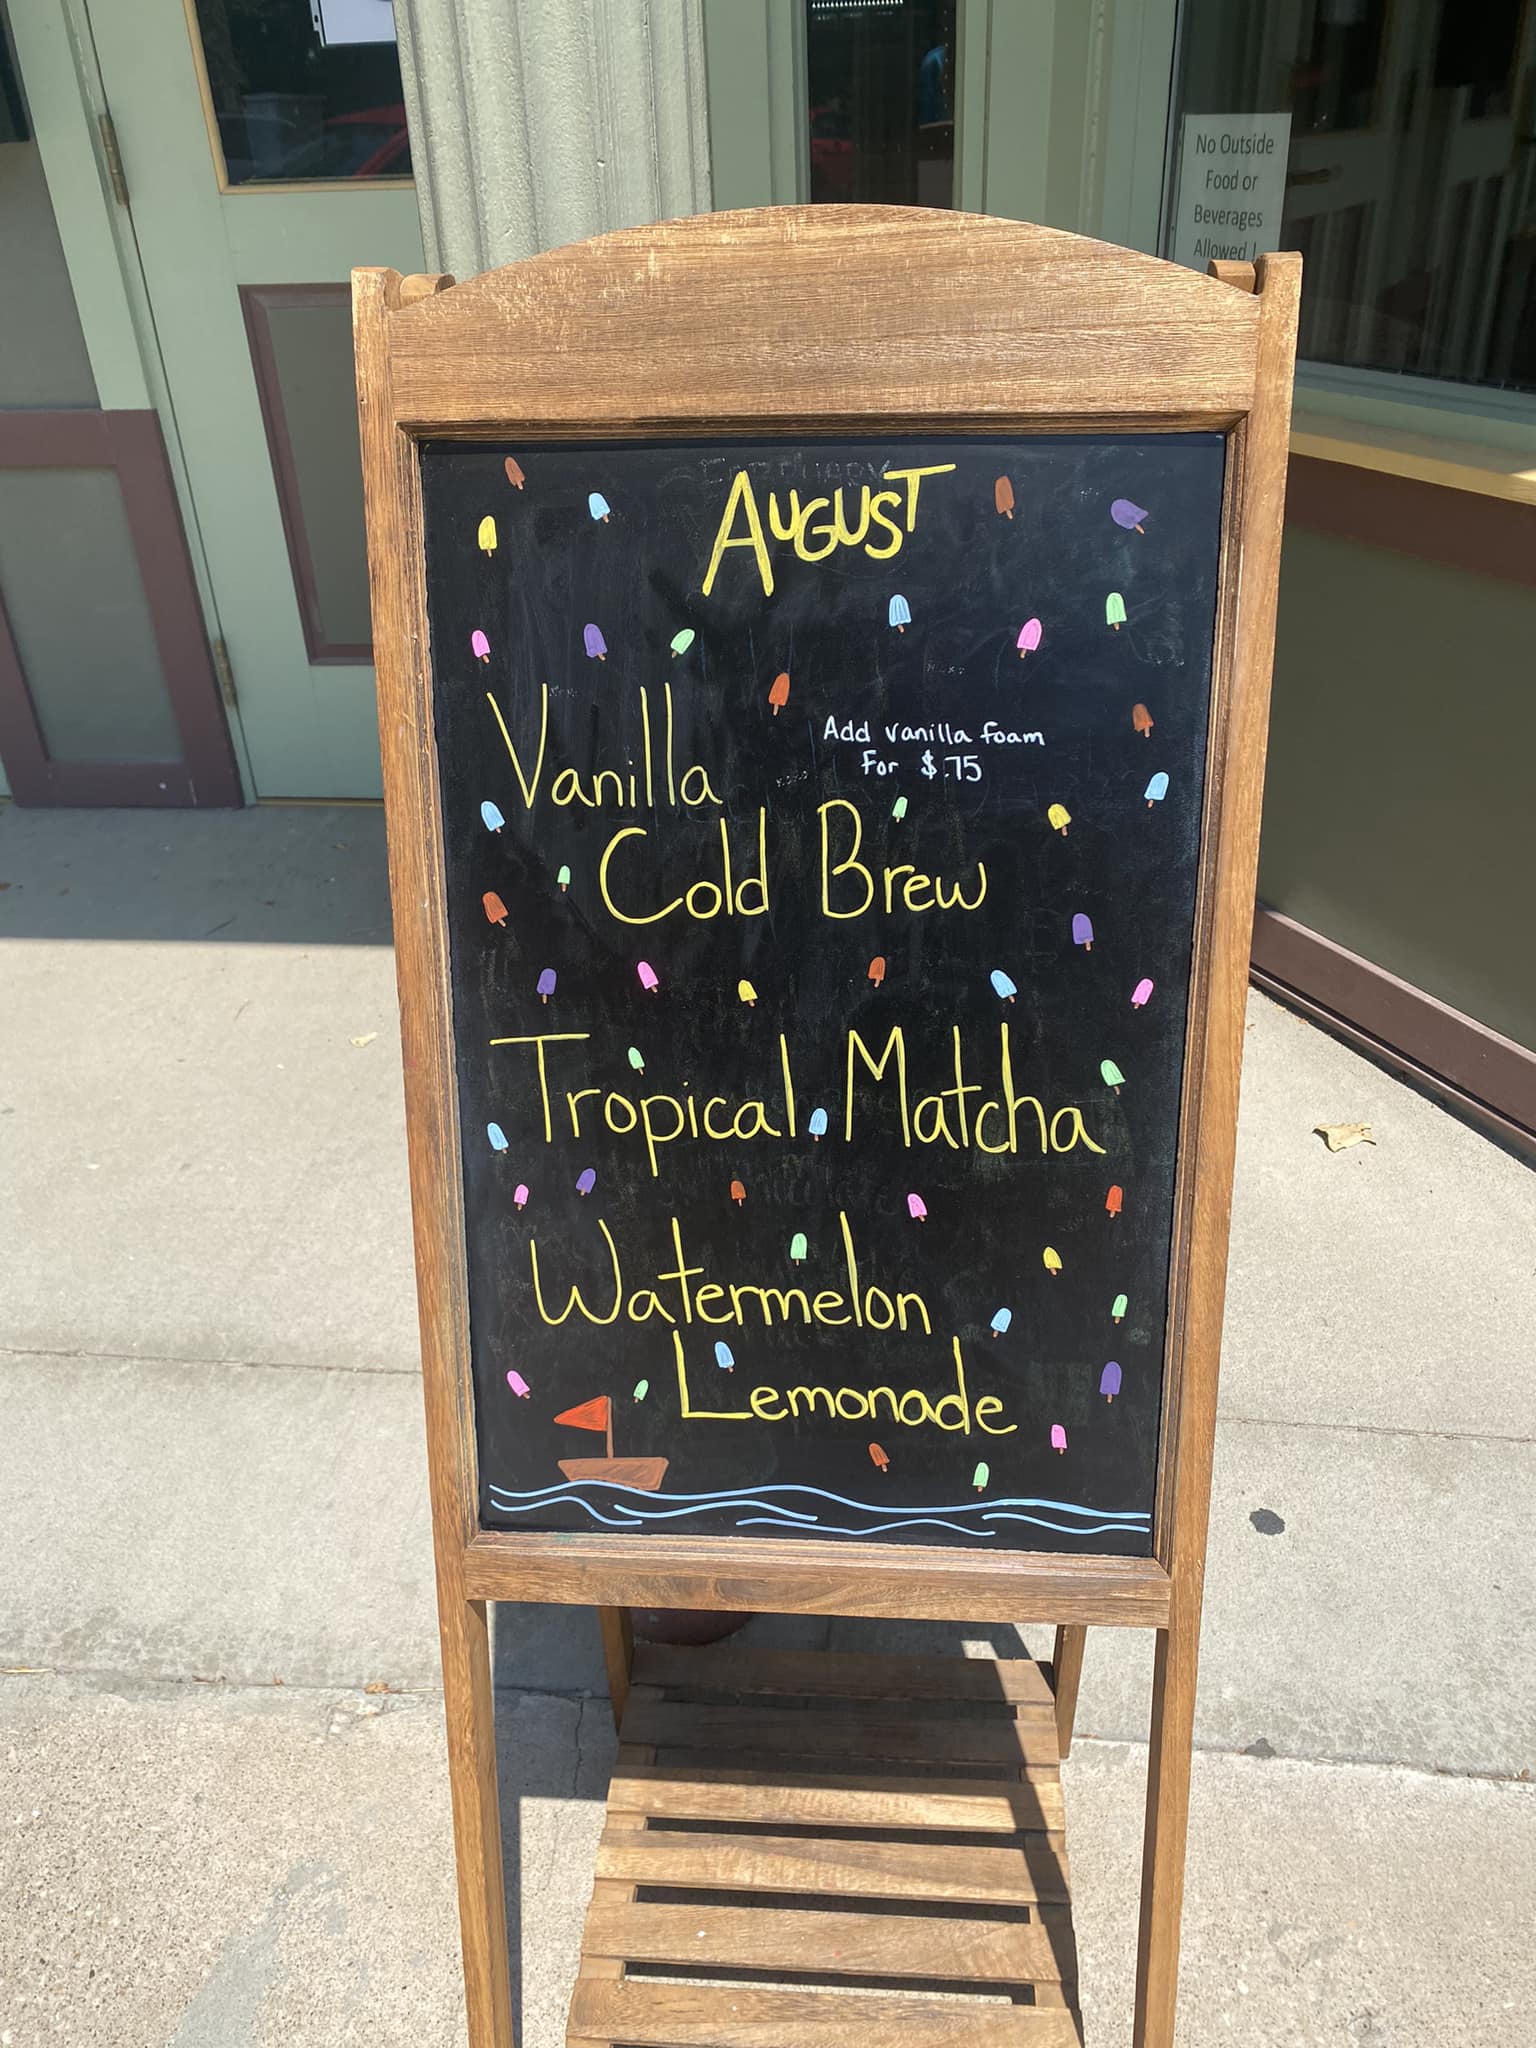 No Outside
Food or
Beverages
Allowed !
AUGUST
Vanilla
Add vanilla foam
For $.75
Cold Brew
Tropical Matcha
Watermelon
Lemonade